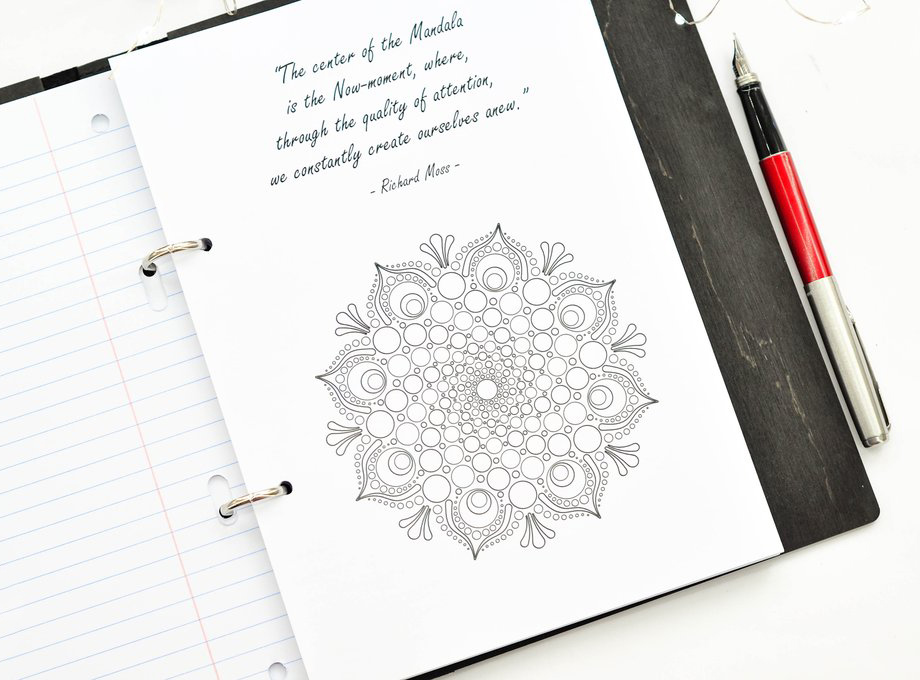 "The center of the Mandala
is the Now-moment, where,
through the quality of attention,
we constantly create ourselves anew."
- Richard Moss -